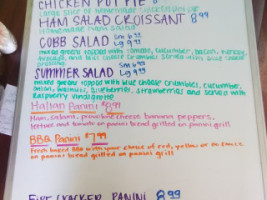 CHICKEN POT PIE 8
HAM SALAD CROISSANT 8.99
homemade ham salad
COBB SALAD Sm 6.99
Lg 8.99
mixed greens topped with tomato, cucumber, bacon, turkey,
and blue cheese crumbles served with
SUMMER SALAD Sm 6.99
Lg 8.99
mixed greens topped with blue cheese crumbles, cucumber,
onion, walnuts, blueberries, strawberries and served with
raspberry vinaigrette
Italian Panini $8.99
Ham, salami, provolone cheese, banana peppers,
lettuce and tomato on panini bread grilled on panini grill
BBQ Panini $7.99
Fresh based BBQ with your choice of red, yellow or
on panini bread grilled on panini grill
FIRECRACKER PANINI 8.99